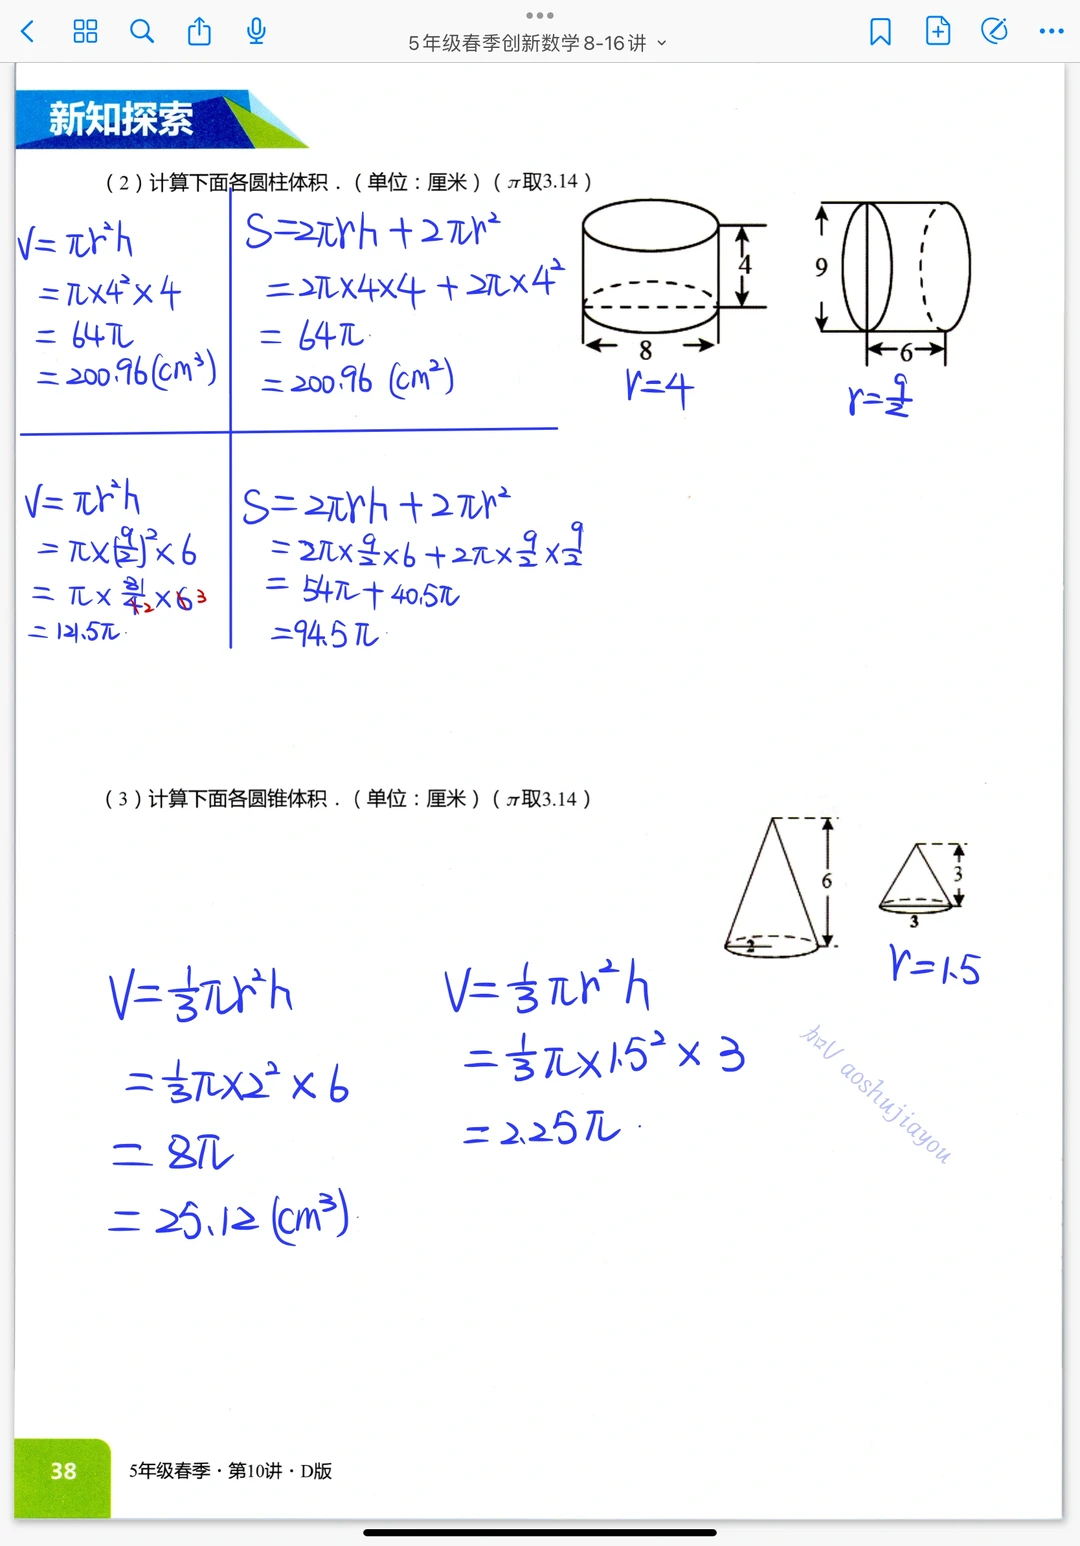 5年级春季创新数学8-16讲
新知探索
（2）计算下面各圆柱体积．（单位：厘米）（π取3.14）
V=πr²h
=π×4²×4
=64π
=200.96(cm³)
S=2πrh+2πr²
=2π×4×4+2π×4²
=64π
=200.96 (cm²)
4
8
r=4
9
6
r=9/2
V=πr²h
=π×(9/2)²×6
=π×81/4 2×6 3
=121.5π
S=2πrh+2πr²
=2π×9/2×6+2π×9/2×9/2
=54π+40.5π
=94.5π
（3）计算下面各圆锥体积．（单位：厘米）（π取3.14）
6
2
3
3
r=1.5
V=1/3πr²h
=1/3π×2²×6
=8π
=25.12(cm³)
V=1/3πr²h
=1/3π×1.5²×3
=2.25π
加V aoshujiayou
38
5年级春季·第10讲·D版